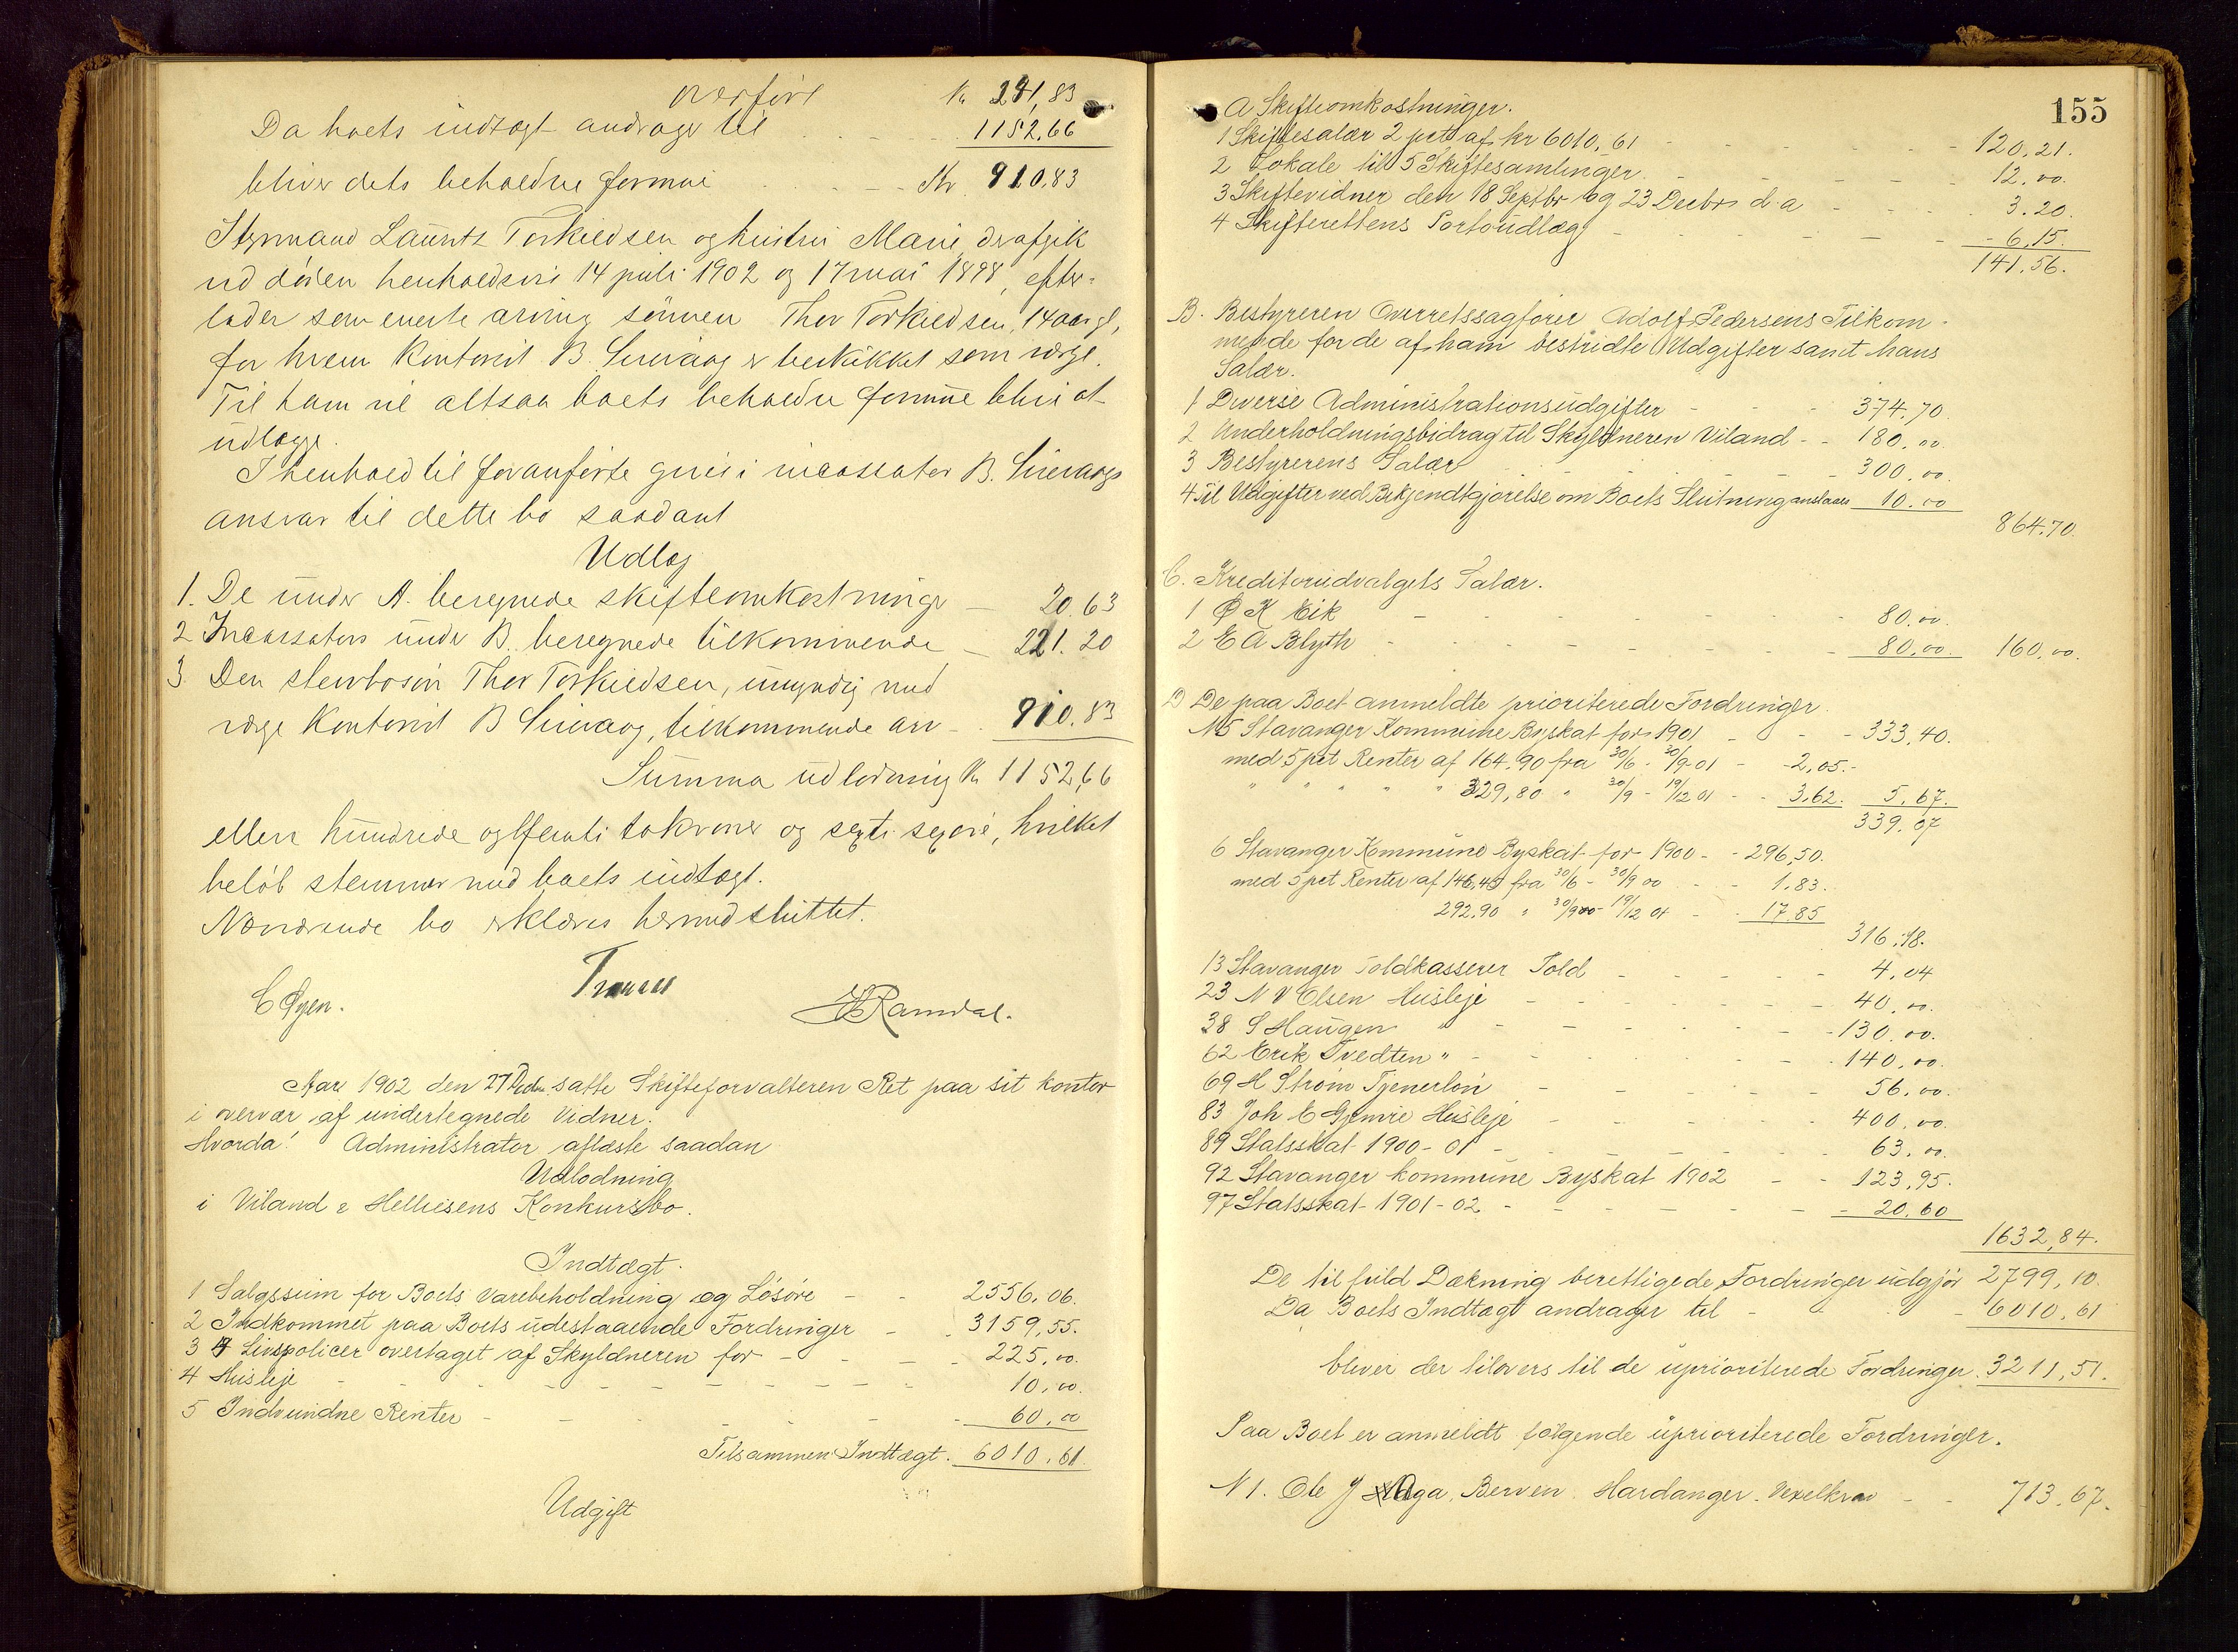 overført Kr 241,83
Da boets indtægt andrager til 1152.66
bliver dets beholdne formue Kr 910.83
Styrmand Lauritz Torkildsen og hustru Marie, der afgik
ved døden henholdsvis 14 juli 1902 og 17 mai 1898, efter-
lader som eneste arving sønnen Thor Torkildsen, 14 aar gl,
for hvem Kontorist B. Sirevaag er beskikket som værge.
Til ham vil altsaa boets beholdne formue blive at
udlægge.
I henhold til foranførte gives i incassator B. Sirevaags
ansvar til dette bo saadant
Udlæg
1. De under A. beregnede skifteomkostninger — 20.63
2 Incassators under B. beregnede tilkommende — 221.20
3. Den stervbosøn Thor Torkildsen, umyndig med
værge Kontorist B Sirevaag, tilkommende arv - 910.83
Summa udlodning Kr 1152,66
elleve hundrede og femti to kroner og sexti sex øre, hvilket
beløb stemmer med boets indtægt.
Nærværende bo erklæres hermed sluttet.
C Øyen. H Ramdal.
Aar 1902 den 27 Decbr. satte Skifteforvalteren Ret paa sit kontor
i overvær af undertegnede Vidner.
Hvorda! Administrator aflæste saadan
Udlodning
i Viland & Helliesens Konkursbo.
Indtægt.
1 Salgssum for Boets varebeholdning og Løsøre - - 2556.06.
2 Indkommet paa Boets udestaaende Fordringer - - 3159,55.
3 4 Livspolicer overtaget af Skyldneren for - - - - 225,00.
4 Husleje - - - - - - - - - 10,00.
5 Indvundne Renter - - - - - - 60,00
Tilsammen Indtægt. 6010,61.
Udgift
155
A Skifteomkostninger.
1 Skiftesalær 2 pct af kr 6010,61 - - - - - 120,21.
2 Lokale til 5 Skiftesamlinger. - - - - - 12.00.
3 Skiftevidner den 18 Septbr og 23 Decbr d.a - - - 3.20.
4 Skifterettens Portoudlæg - - - - - - 6,15.
141,56.
B. Bestyreren Overretssagfører Adolf Pedersens Tilkom-
mende for de af ham bestridte Udgifter samt hans
Salær.
1 Diverse Administrationsudgifter - - - 374,70.
2 Underholdningsbidrag til Skyldneren Viland - - 180.00
3 Bestyrerens Salær - - - - - 300,00.
4 Til Udgifter ved Bekjendtgjørelse om Boets Slutning anslaaes 10.00
864.70.
C. Kreditorudvalgets Salær.
1 O K Eik - - - - - - - 80.00.
2 E A Blyth - - - - - - - 80,00. 160,00.
D De paa Boet anmeldte prioriterede Fordringer.
N5 Stavanger Kommune Byskat for 1901 - - - 333,40.
med 5 pct Renter af 164.90 fra 30/6 - 30/9 01 - - 2,05.-
" " " " " 329,80 " 30/9 - 19/12 01 - - 3,62. 5,67.
339.07
6 Stavanger Kommune Byskat for 1900 - - 296,50.
med 5 pct Renter af 146,45 fra 30/6 - 30/9 00 - - 1.83.
292.90 " 30/9 00 - 19/12 01 - - 17.85
316.18.
13 Stavanger Toldkasserer Told - - - - - 4.04
23 N V Olsen Husleje - - - - - - 40,00.
38 S Haugen " - - - - - - 130.00.
62 Erik Tvedten " - - - - - - 140,00.
69 H Strøm Tjenerløn - - - - - 56.00.
83 Joh E Gjemre Husleje - - - - - 400,00.
89 Statsskat 1900-01 - - - - - - 63.00.
92 Stavanger kommune Byskat 1902 - - 123,95.
97 Statsskat 1901-02 - - - - - - 20,60
1632,84.
De til fuld Dækning berettigede Fordringer udgjør 2799,10.
Da Boets Indtægt andrager til - - - 6010,61
bliver der tilovers til de uprioriterede Fordringer. 3211,51.
Paa Boet er anmeldt følgende uprioriterede Fordringer.
N 1. Ole J Aga, Berven Hardanger. Vexelkrav - - 713,67.